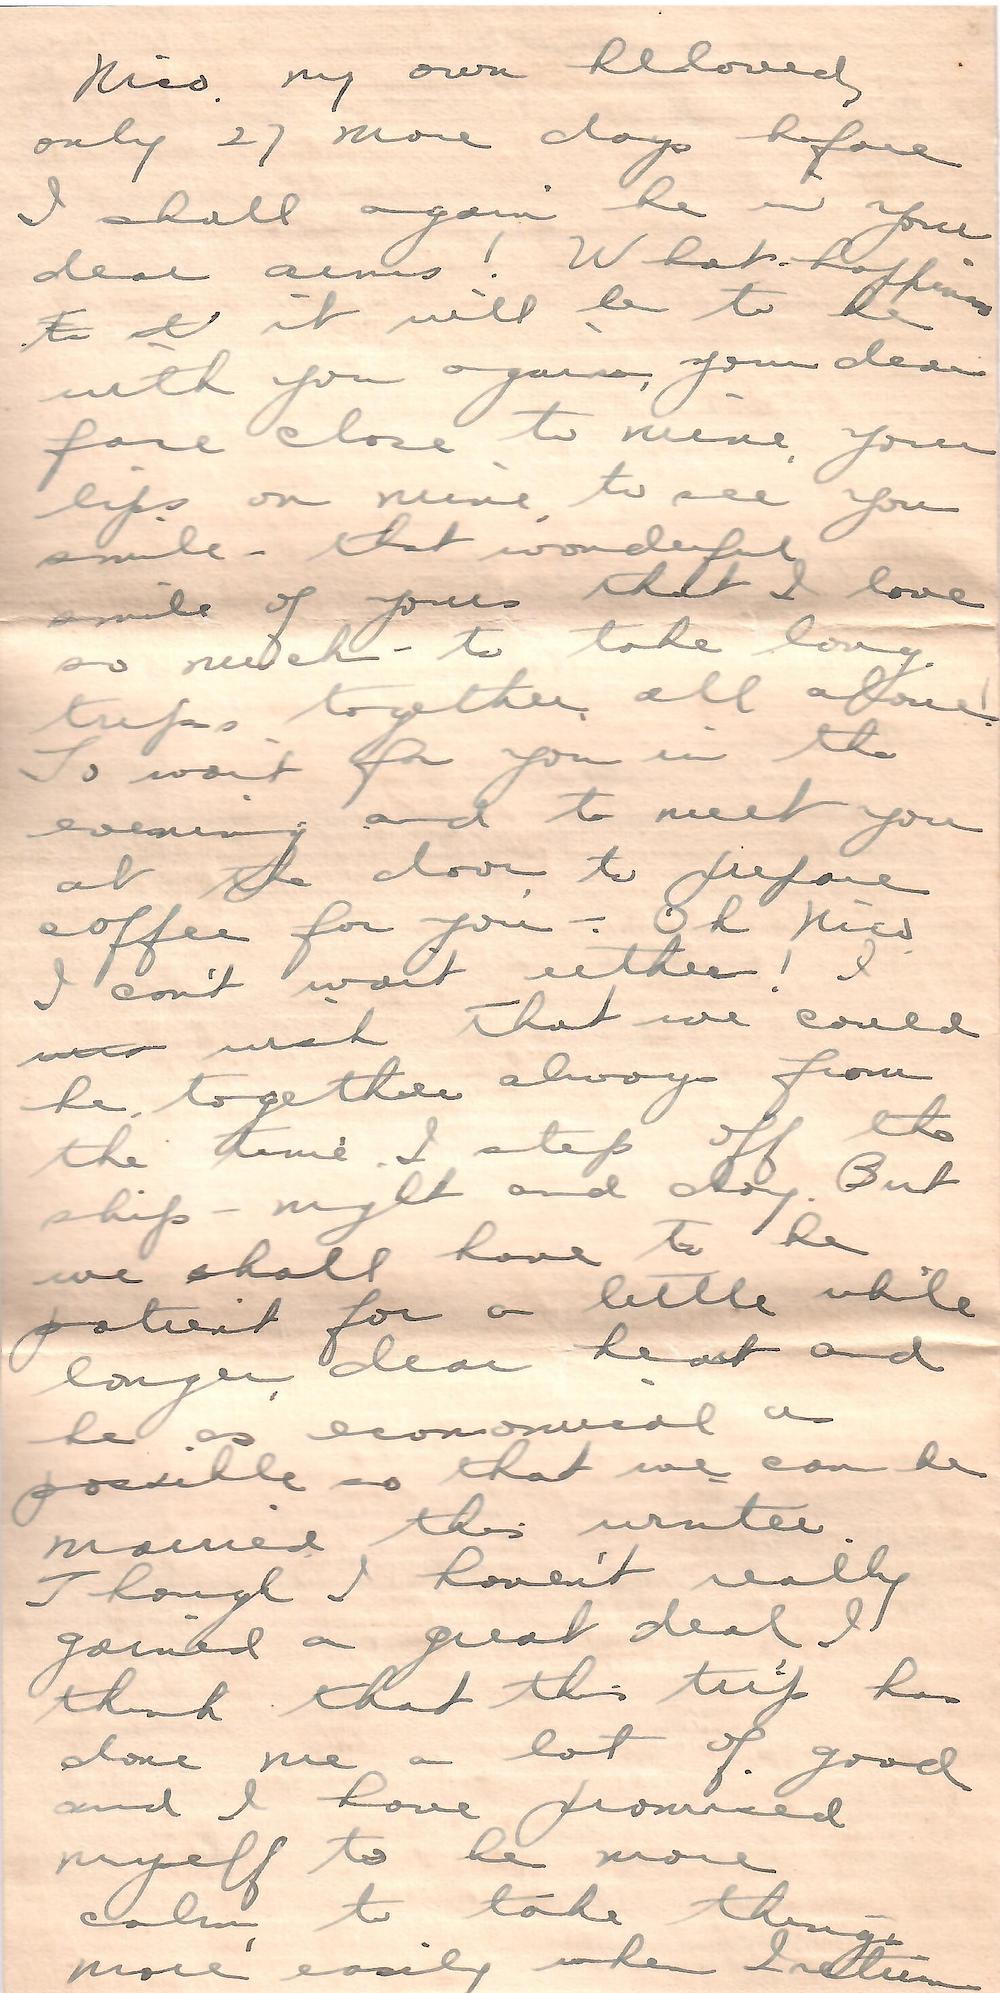 Nico, my own beloved,
only 27 more days before
I shall again be in your
dear arms! What happiness
it will be to be
with you again, your dear
face close to mine, your
lips on mine, to see you
smile - that wonderful
smile of yours that I love
so much - to take long
trips together, all alone!
To wait for you in the
evening and to meet you
at the door, to prepare
coffee for you - Oh Nico
I can't wait either! I
wish that we could
be together always from
the time I step off the
ship - night and day. But
we shall have to be
patient for a little while
longer, dear heart and
be as economical as
possible so that we can be
married this winter.
Though I haven't really
gained a great deal I
think that this trip has
done me a lot of good
and I have promised
myself to be more
calm, to take things
more easily when I return